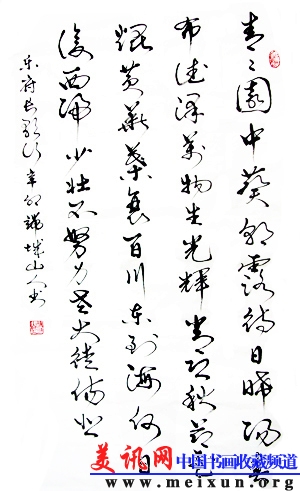 青々園中葵朝露待日晞陽春
布德澤萬物生光輝常恐秋節至
焜黄華葉衰百川东到海何日
復西歸少壮不努力老大徒傷悲
乐府长歌行辛卯城山人书
美讯网 中国书画收藏频道
www.meixun.org